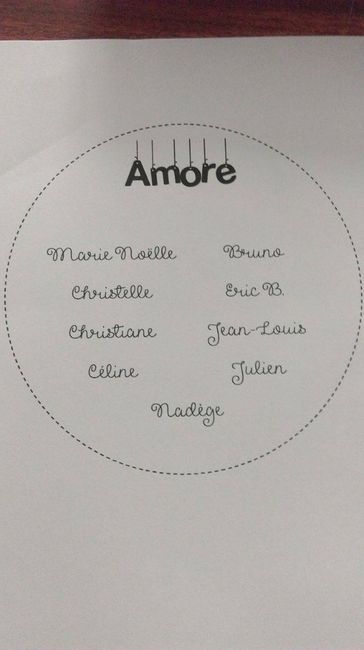 Amore
Marie Noëlle Bruno
Christelle Eric B.
Christiane Jean-Louis
Céline Julien
Nadège